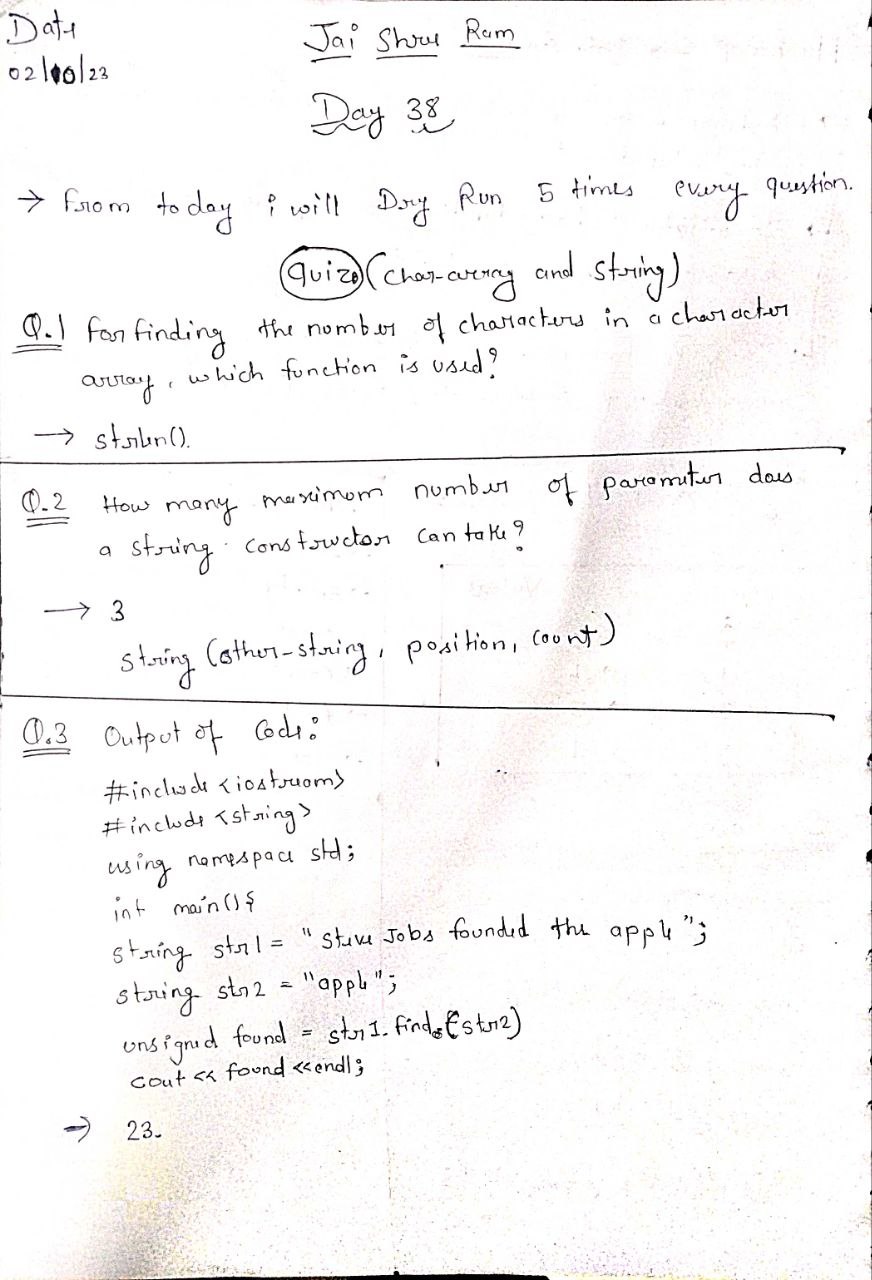 Date
02/10/23
Jai Shree Ram
Day 38
→ From today i will Dry Run 5 times every question.
Quize (char-array and string)
Q.1 For finding the number of characters in a character
array, which function is used?
→ strlen().
Q.2 How many maximum number of parameter does
a string constructor can take?
→ 3
string (other-string, position, count)
Q.3 Output of Code:
#include <iostream>
#include <string>
using namespace std;
int main() {
string str1 = "Steve Jobs founded the apple";
string str2 = "apple";
unsigned found = str1.find(str2)
cout << found <<endl;
→ 23.